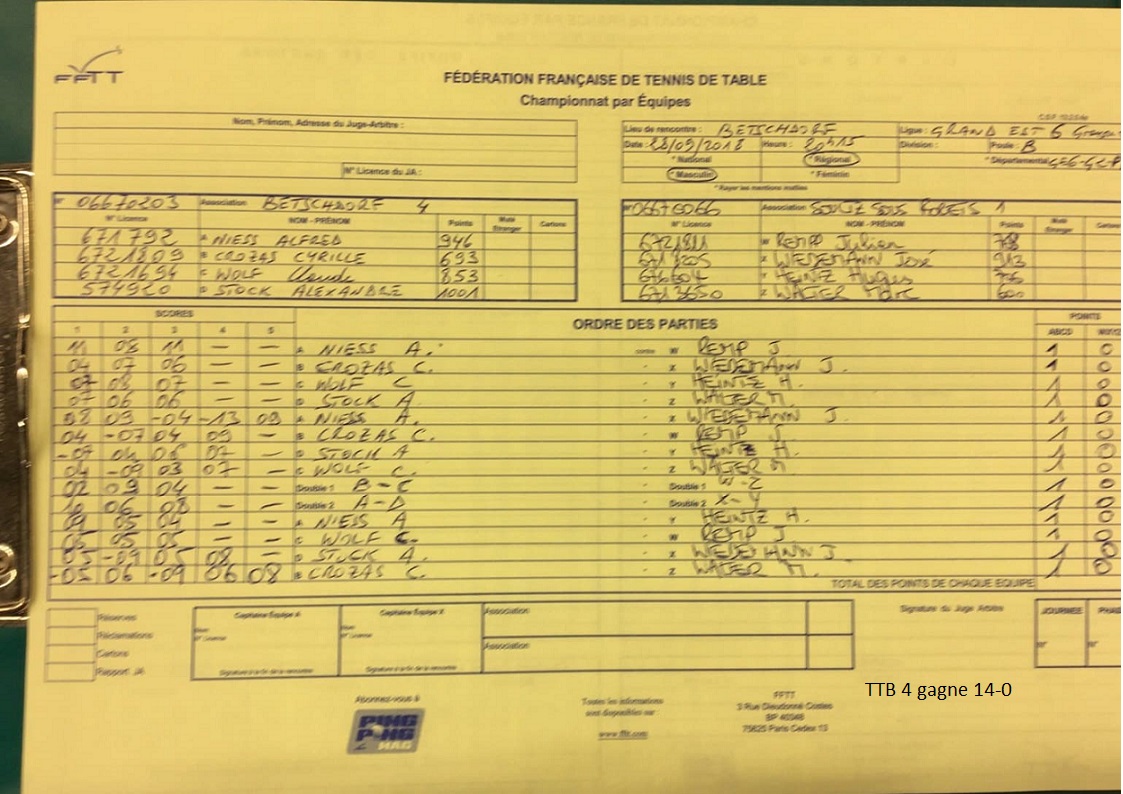 FFTT
FÉDÉRATION FRANÇAISE DE TENNIS DE TABLE
Championnat par Équipes
Nom, Prénom, Adresse du Juge-Arbitre :
N° Licence du JA :
Lieu de rencontre : BETSCHDORF Ligue : GRAND EST 6
Date : 28/09/2018 Heure : 20h15 Division : Poule : B
* National * Régional * Départemental
* Masculin * Féminin
* Rayer les mentions inutiles
N° 06670203 Association BETSCHDORF 4
N° Licence NOM - PRÉNOM Points Muté Etranger Cartons
671792 A NIESS ALFRED 946
6721809 B CROZAS CYRILLE 693
6721694 C WOLF Claude 853
574920 D STOCK ALEXANDRE 1001
N° 06670066 Association SOULTZ SOUS FORETS 1
N° Licence NOM - PRÉNOM Points Muté Etranger Cartons
6721811 W REMP Julien
671205 X WIEDEMANN José 913
676604 Y HEINTZ Hugues
6713650 Z WALTER Marc 600
SCORES ORDRE DES PARTIES POINTS
1 2 3 4 5 ABCD WXYZ
11 08 11 — — A NIESS A. contre W REMP J 1 0
04 07 06 — — B CROZAS C. - X WIEDEMANN J. 1 0
07 08 07 — — C WOLF C - Y HEINTZ H. 1 0
07 06 06 — — D STOCK A. - Z WALTER M. 1 0
08 09 -04 -13 09 A NIESS A. - X WIEDEMANN J. 1 0
04 -07 04 09 — B CROZAS C. - W REMP J 1 0
-07 04 06 07 — D STOCK A - Y HEINTZ H. 1 0
04 -09 03 07 — C WOLF C. - Z WALTER M 1 0
02 09 04 — — Double 1 B-C - Double 1 W-Z 1 0
10 06 08 — — Double 2 A-D - Double 2 X-Y 1 0
09 05 04 — — A NIESS A - Y HEINTZ H. 1 0
05 05 05 — — C WOLF C. - W REMP J 1 0
05 -09 05 08 — D STOCK A. - X WIEDEMANN J. 1 0
-05 06 -09 06 08 B CROZAS C. - Z WALTER M. 1 0
TOTAL DES POINTS DE CHAQUE EQUIPE
Réserves
Réclamations
Cartons
Rapport JA
Capitaine Équipe A
Nom
N° Licence
Signature à la fin de la rencontre
Capitaine Équipe X
Nom
N° Licence
Signature à la fin de la rencontre
Association
Association
Signature du Juge Arbitre
JOURNEE
N°
N°
TTB 4 gagne 14-0
Abonnez-vous à
PING PONG MAG
Toutes les informations
sont disponibles sur
www.fftt.com
FFTT
3 Rue Dieudonné Costes
BP 40348
75625 Paris Cedex 13